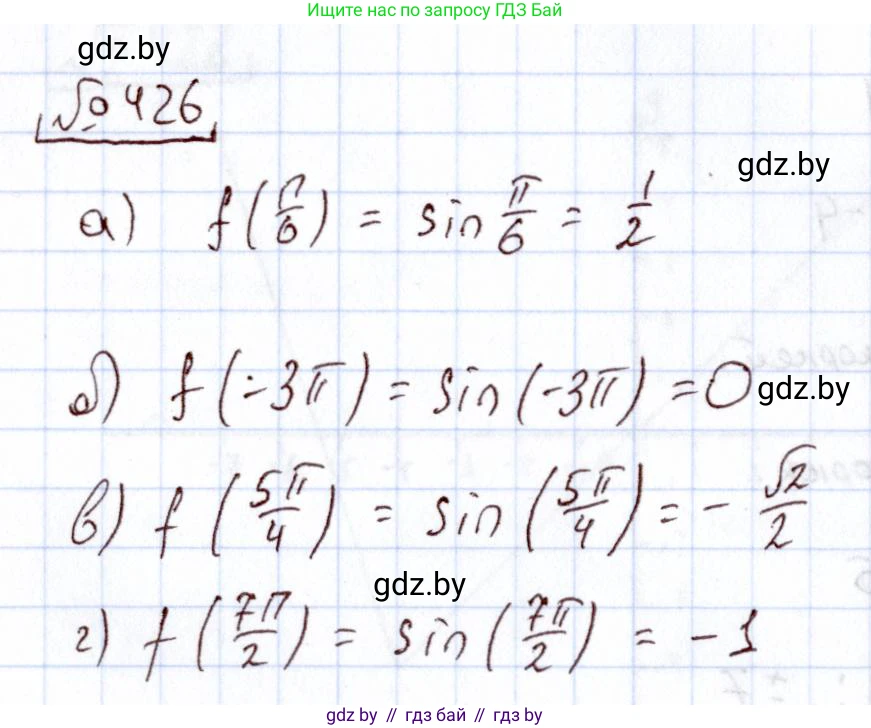 Ищите нас по запросу ГДЗ Бай
gdz.by
№ 426
gdz.by
а) f(π/6) = sin π/6 = 1/2
б) f(-3π) = sin(-3π) = 0
gdz.by
в) f(5π/4) = sin(5π/4) = -√2/2
gdz.by
г) f(7π/2) = sin(7π/2) = -1
gdz.by // гдз бай // gdz.by